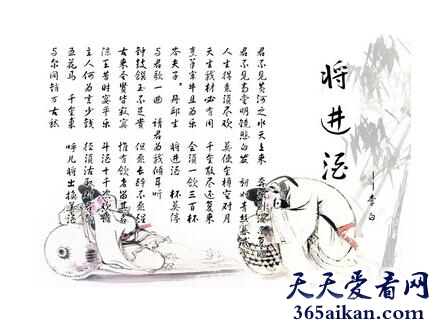 将进酒
——李白
君不见黄河之水天上来 奔流到海不复回
君不见高堂明镜悲白发 朝如青丝暮成雪
人生得意须尽欢 莫使金樽空对月
天生我材必有用 千金散尽还复来
烹羊宰牛且为乐 会须一饮三百杯
岑夫子,丹邱生 将进酒 杯莫停
与君歌一曲 请君为我倾耳听
钟鼓馔玉不足贵 但愿长醉不愿醒
古来圣贤皆寂寞 惟有饮者留其名
陈王昔时宴平乐 斗酒十千恣欢谑
主人何为言少钱 径须沽取
五花马 千金裘 呼儿将出换美酒
与尔同销万古愁
天天爱看网
365aikan.com